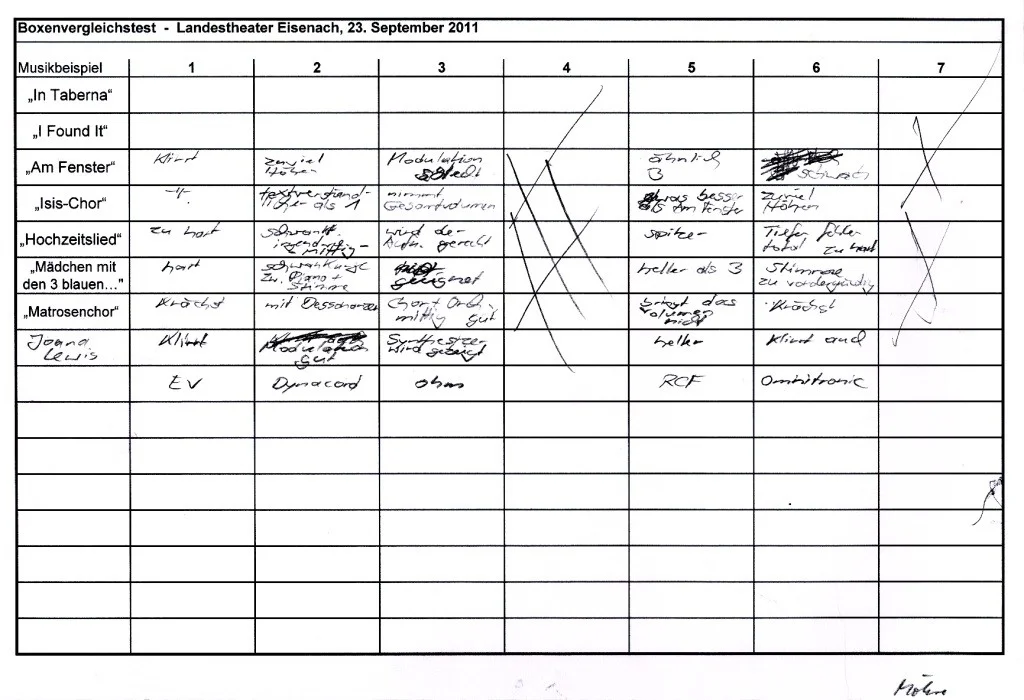 Boxenvergleichstest - Landestheater Eisenach, 23. September 2011
Musikbeispiel 1 2 3 4 5 6 7
„In Taberna“
„I Found It“
„Am Fenster“ Klirrt zuviel Höhen Modulation schlecht ähnlich 3 schwach
„Isis-Chor“ -"- textverständ- licher als 1 nimmt Gesamtvolumen etwas besser als Am Fenster zuviel Höhen
„Hochzeitslied“ zu hart schwankt. mittig wird der gerecht spitzer Tiefen fehlen total zu hart
„Mädchen mit den 3 blauen...“ hart schwankungen zw. Piano + Stimme geeignet heller als 3 Stimme zu vordergründig
„Matrosenchor“ Krächzt mit Chor + Orch. mittig gut bringt das Volumen nicht Krächzt
Joana Lewis Klirrt Modulation gut Synthesizer wird heller Klirrt und
EV Dynacord ohm RCF Omnitronic